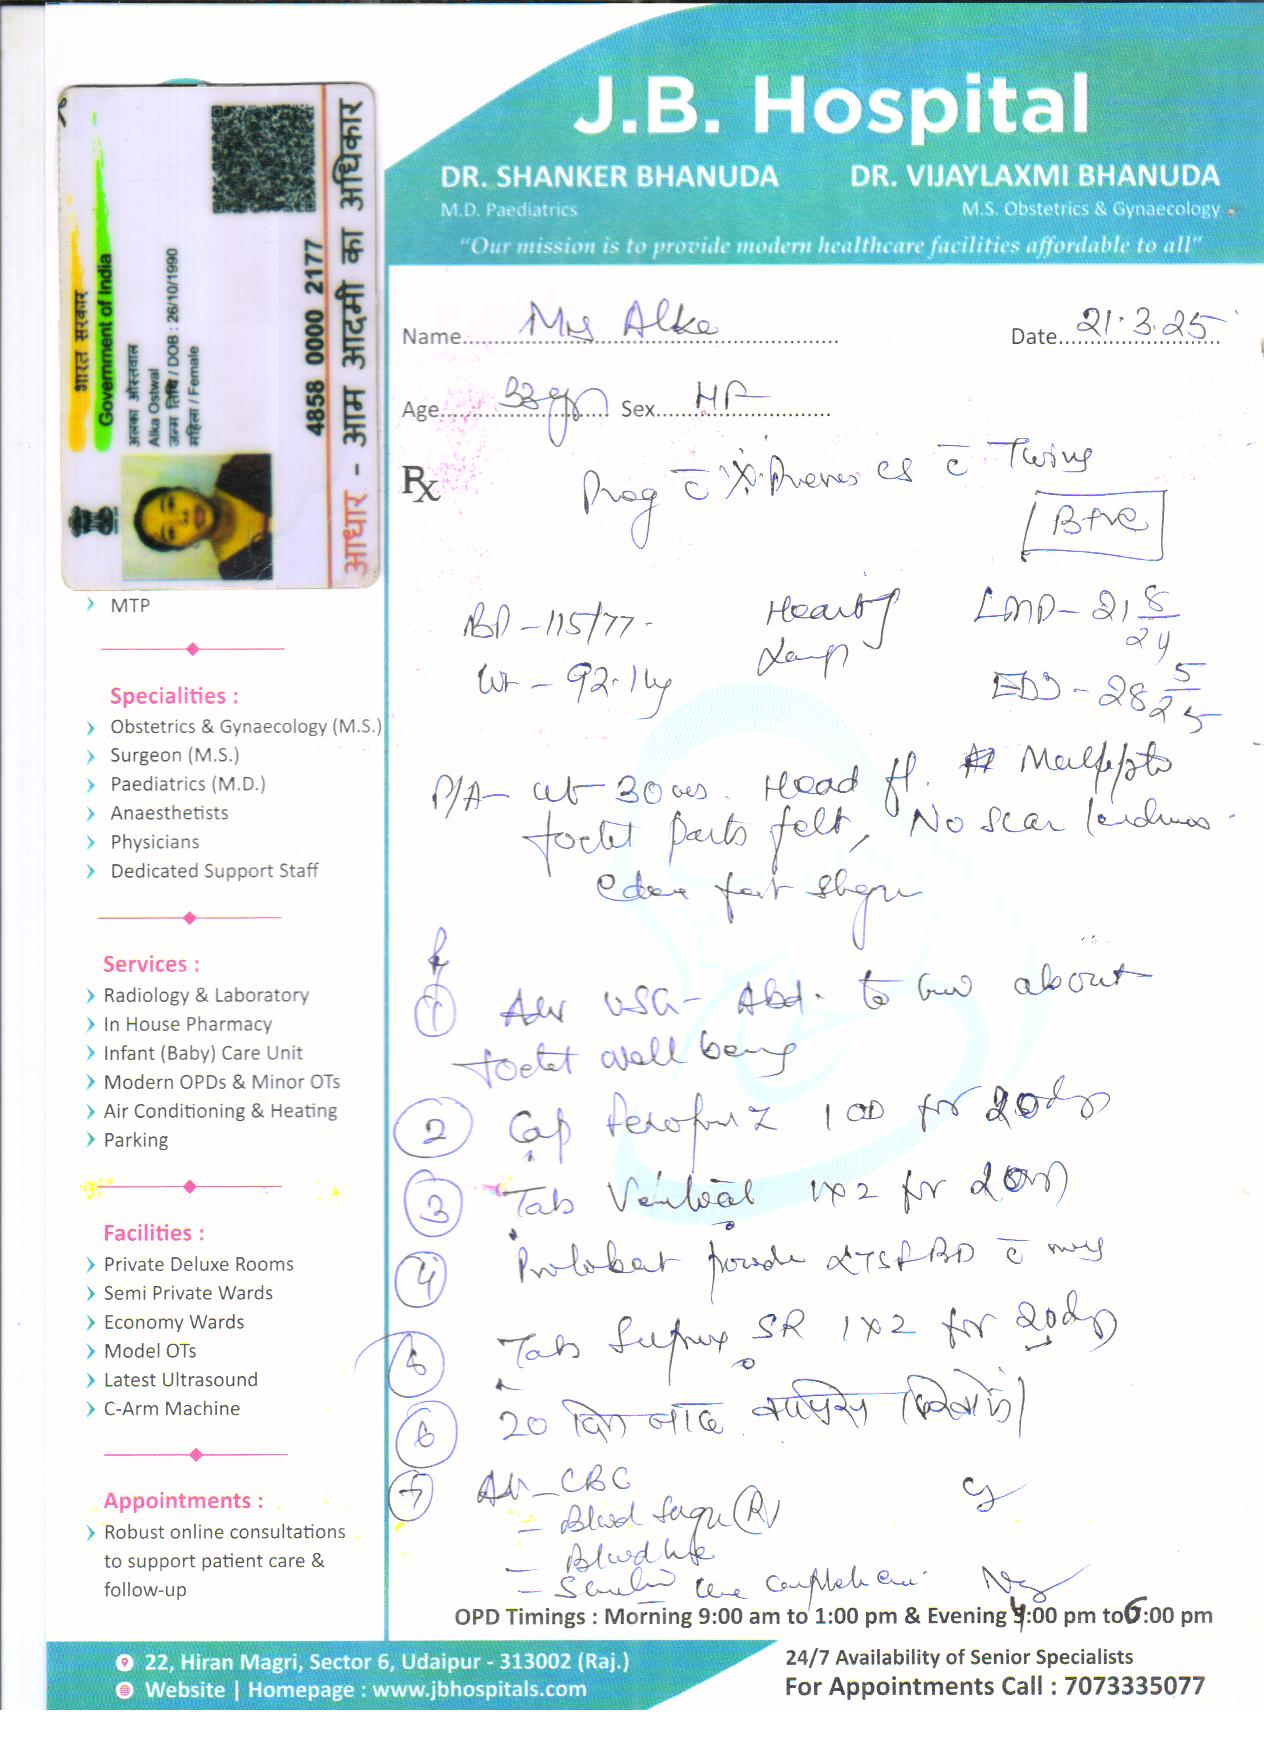 J.B. Hospital
DR. SHANKER BHANUDA
M.D. Paediatrics
DR. VIJAYLAXMI BHANUDA
M.S. Obstetrics & Gynaecology
"Our mission is to provide modern healthcare facilities affordable to all"
भारत सरकार
Government of India
अलका ओस्तवाल
Alka Ostwal
जन्म तिथि / DOB : 26/10/1990
महिला / Female
4858 0000 2177
आधार - आम आदमी का अधिकार
Name Mrs Alka
Date 21.3.25
Age 33 yr Sex HF
Rx
Preg c̄ Previous CS c̄ Twins
B+ve
BP - 115/77
Heart
LMP - 21 8/24
Wt - 92.1 kg
EDD - 28 5/25
P/A - ut - 30 wks. Head
foetal parts felt, No scar tenderness
1 Adv USG - Abd. to know about
foetal well being
2 Cap Z 1 OD for 20 days
3 Tab 1x2 for 20 days
4 2TSF BD c̄
5 Tab SR 1x2 for 20 days
6 20 दिन बाद
7 Adv - CBC
- Blood Sugar (R)
- Blood
- urine complete
MTP
Specialities :
Obstetrics & Gynaecology (M.S.)
Surgeon (M.S.)
Paediatrics (M.D.)
Anaesthetists
Physicians
Dedicated Support Staff
Services :
Radiology & Laboratory
In House Pharmacy
Infant (Baby) Care Unit
Modern OPDs & Minor OTs
Air Conditioning & Heating
Parking
Facilities :
Private Deluxe Rooms
Semi Private Wards
Economy Wards
Model OTs
Latest Ultrasound
C-Arm Machine
Appointments :
Robust online consultations
to support patient care &
follow-up
OPD Timings : Morning 9:00 am to 1:00 pm & Evening 4:00 pm to 6:00 pm
22, Hiran Magri, Sector 6, Udaipur - 313002 (Raj.)
Website | Homepage : www.jbhospitals.com
24/7 Availability of Senior Specialists
For Appointments Call : 7073335077